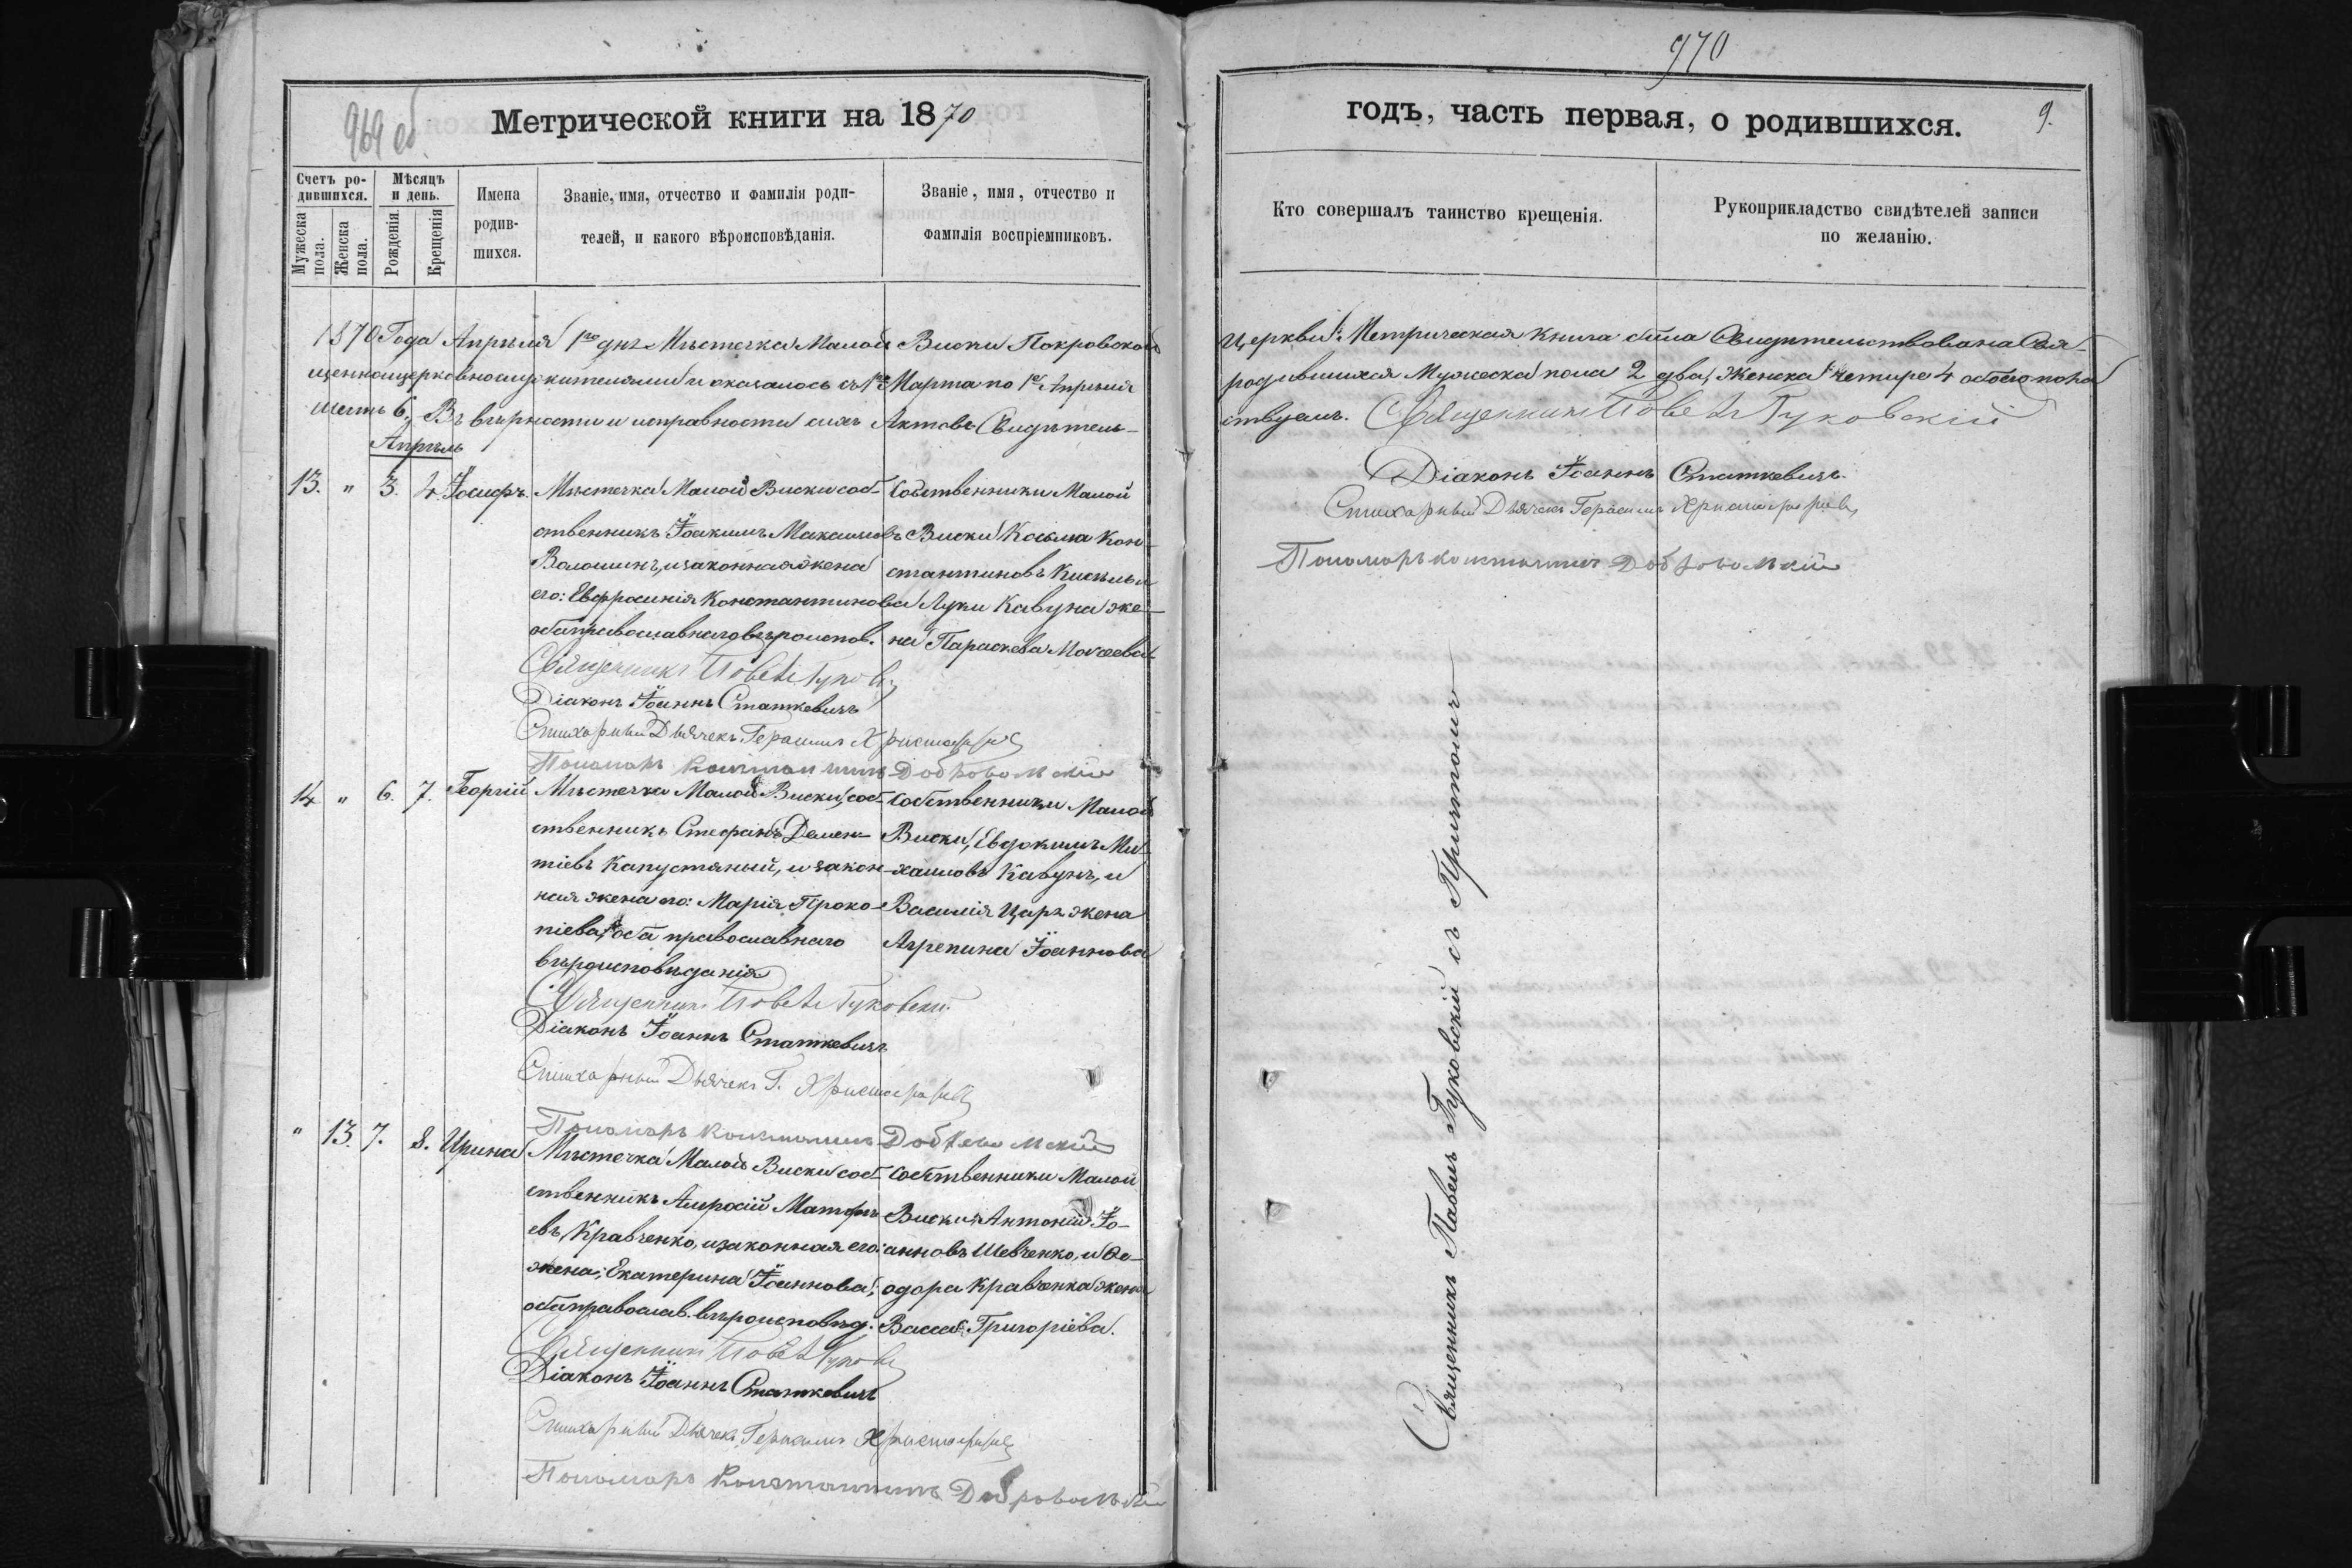 969 об
Метрической книги на 1870
Счетъ ро-
дившихся.
Мужеска
пола.
Женска
пола.
Мѣсяцъ
и день.
Рожденія.
Крещенія
Имена
родив-
шихся.
Званіе, имя, отчество и фамилія роди-
телей, и какого вѣроисповѣданія.
Званіе, имя, отчество и
фамилія воспріемниковъ.
1870 Года Апрѣля 1го дня Мѣстечка Малой Виски Покровской
щенноцерковнослужителями и оказалось съ 1го Марта по 1е Апрѣля
шесть 6, Въ вѣрности и исправности сихъ Актовъ Свидѣтель-
Апрѣль
13. " 3. 4 Іосифъ. Мѣстечка Малой Виски соб- Собственники Малой
ственникъ Іоакимъ Максимовъ Виски Косьма Кон-
Волошинъ, и законная жена стантиновъ и
его: Евфросинія Константинова Луки Кавуна же-
оба православнаго вѣроиспов. на Параскева Моисеева
Священникъ Павелъ Гуковс
Діаконъ Іоаннъ Статкевичъ
Стихарный Дьячекъ Герасимъ
Пономарь Константинъ Добровольскій
14 " 6. 7. Георгій Мѣстечка Малой Виски, соб- Собственники Малой
ственникъ Стефанъ Демен- Виски, Евдокимъ Ми-
тіевъ Капустяный, и закон- хаиловъ Кавунъ, и
ная жена его: Марія Проко- Василія Царъ жена
піева, оба православнаго Агрепина Іоаннова
вѣроисповѣданія
Священникъ Павелъ Гуковскій.
Діаконъ Іоаннъ Статкевичъ
Стихарный Дьячекъ Г.
Пономарь Константинъ Добровольскій
" 13. 7. 8. Ирина Мѣстечка Малой Виски соб- Собственники Малой
ственникъ Амросій Матфѣ- Виски Антоній Іо-
евъ, Кравченко, и законная его: анновъ Шевченко, и Ѳе-
жена; Екатерина Іоаннова; одора Кравченка жена
оба православ. вѣроисповѣд. Васса Григоріева.
Священникъ Павелъ
Діаконъ Іоаннъ Статкевичъ
Стихарный Дьячекъ Герасимъ
Пономарь Константинъ Добровольскій
970
годъ, часть первая, о родившихся.
9.
Кто совершалъ таинство крещенія.
Рукоприкладство свидѣтелей записи
по желанію.
Церкви: Метрическая книга была Свидѣтельствована Свя-
родившихся Мужеска пола 2 два, Женска четыре 4 обоего пола
ствуемъ. Священникъ Павелъ Гуковскій
Діаконъ Іоаннъ Статкевичъ.
Стихарный Дьячекъ Герасимъ
Пономарь Константинъ Добровольскій
Священникъ Павелъ Гуковскій съ Причтомъ